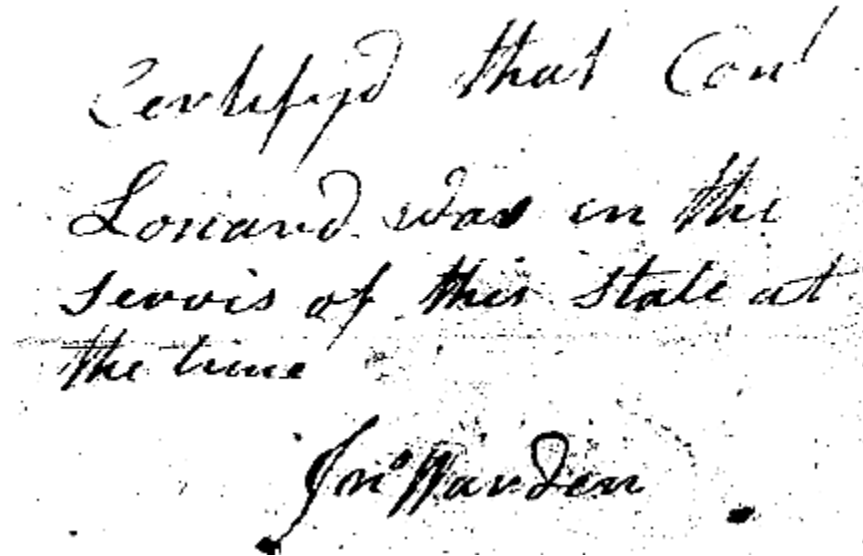 Certifyd that Con<sup>l</sup>
Lonard was in the
servis of this State at
the time
Jn<sup>o</sup> Warden